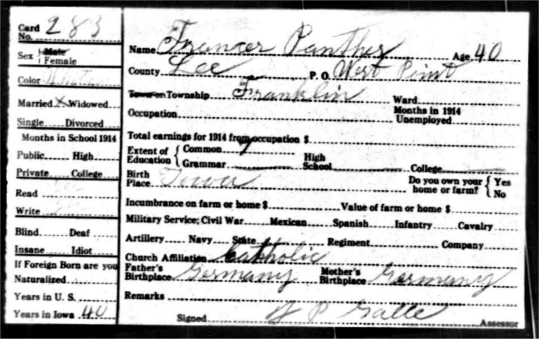 Card No. 283
Sex Male Female
Color
Married X Widowed
Single Divorced
Months in School 1914
Public High
Private College
Read
Write
Blind Deaf
Insane Idiot
If Foreign Born are you
Naturalized
Years in U. S.
Years in Iowa 40
Name Frances Panther Age 40
County Lee P. O. West Point
Town or Township Franklin Ward
Occupation Months in 1914 Unemployed
Total earnings for 1914 from occupation $
Extent of Education { Common 7 High School College
Grammar
Birth Place Iowa Do you own your home or farm? { Yes No
Incumbrance on farm or home $ Value of farm or home $
Military Service; Civil War Mexican Spanish Infantry Cavalry
Artillery Navy State Regiment Company
Church Affiliation Catholic
Father's Birthplace Germany Mother's Birthplace Germany
Remarks
Signed J P Galle Assessor